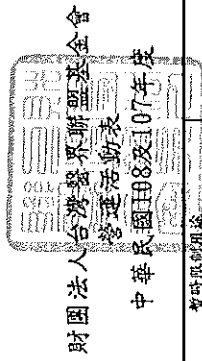 財團法人台灣醫界聯盟基金會
營運活動表
中華民國108及107年度
暫時限制用途